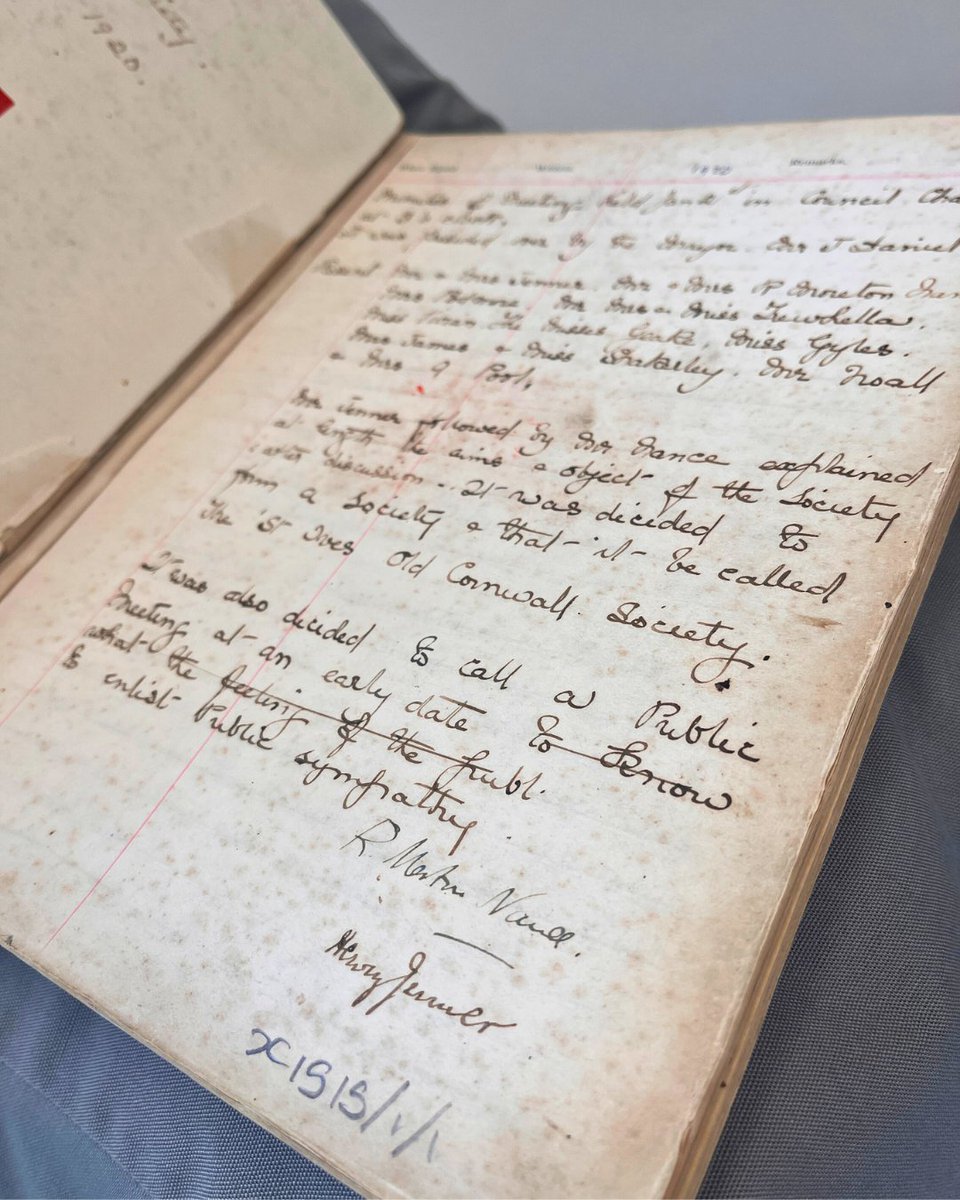 1920.
1920
Minutes of Meeting held June in Council Cha
at 8 o'clock.
It was presided over by the Mayor Mr J Daniel
Present Mr & Mrs Jenner. Mr & Mrs R Moreton
Mrs Mr Mrs & Miss Trewhella.
Miss The Misses Miss Gyles.
Mrs James & Miss Mr Noall
& Mrs A Pool,
Mr Jenner followed by Mr Nance explained
at length the aims & object of the Society
& after discussion. It was dicided to
form a Society & that it be called
The St Ives Old Cornwall Society.
It was also dicided to call a Public
Meeting at an early date to know
what the feeling of the publ.
to enlist Public sympathy.
R. Morton Nance.
Henry Jenner
X1515/1/1